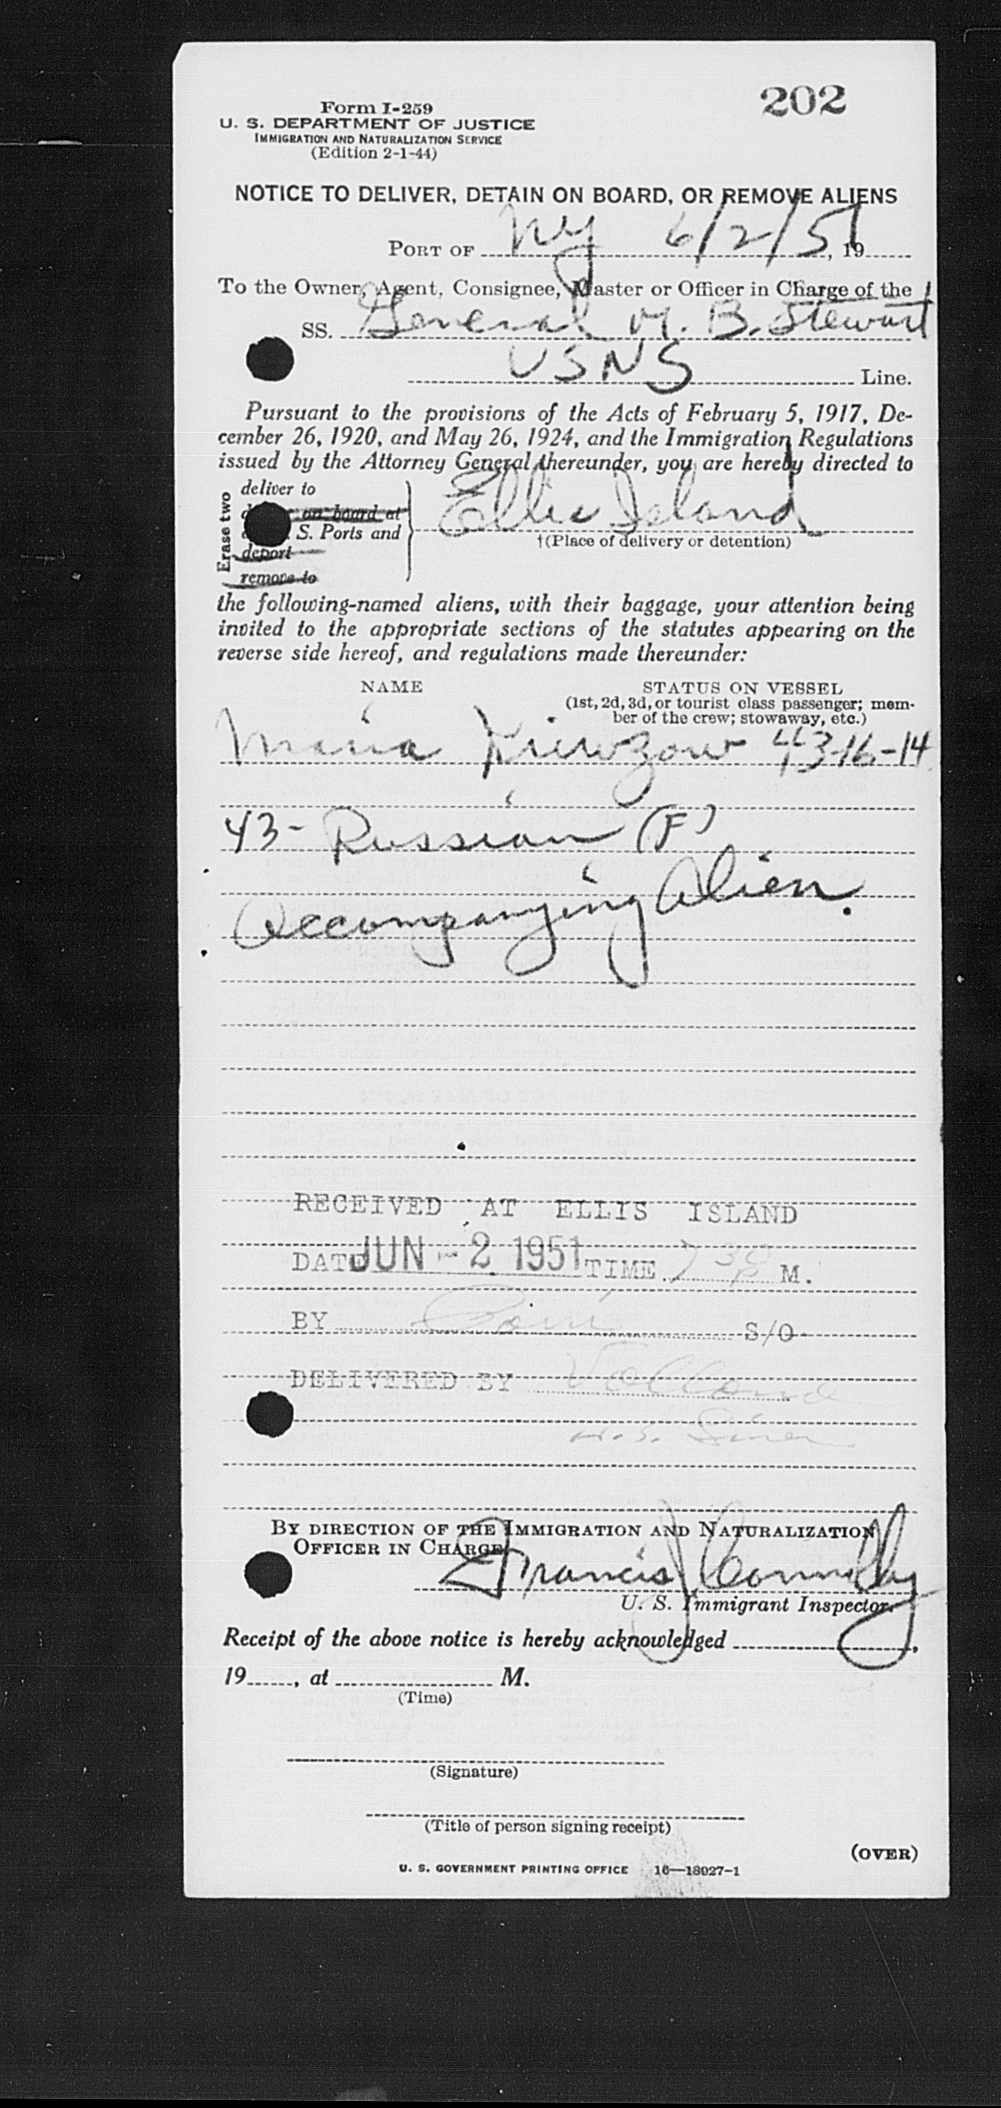 202
Form I-259
U. S. DEPARTMENT OF JUSTICE
IMMIGRATION AND NATURALIZATION SERVICE
(Edition 2-1-44)
NOTICE TO DELIVER, DETAIN ON BOARD, OR REMOVE ALIENS
PORT OF NY 6/2/51, 19
To the Owner, Agent, Consignee, Master or Officer in Charge of the
SS. General M. B. Stewart
USNS Line.
Pursuant to the provisions of the Acts of February 5, 1917, De-
cember 26, 1920, and May 26, 1924, and the Immigration Regulations
issued by the Attorney General thereunder, you are hereby directed to
Erase two
deliver to
on board at
S. Ports and
deport
remove to
Ellis Island
†(Place of delivery or detention)
the following-named aliens, with their baggage, your attention being
invited to the appropriate sections of the statutes appearing on the
reverse side hereof, and regulations made thereunder:
NAME STATUS ON VESSEL
(1st, 2d, 3d, or tourist class passenger; mem-
ber of the crew; stowaway, etc.)
Maria Kriwzow 43-16-14
43- Russian (F)
Accompanying Alien.
RECEIVED AT ELLIS ISLAND
DATE JUN - 2 1951 TIME 7 30 P M.
BY S/O
DELIVERED BY
BY DIRECTION OF THE IMMIGRATION AND NATURALIZATION
OFFICER IN CHARGE
Francis J. Connolly
U. S. Immigrant Inspector.
Receipt of the above notice is hereby acknowledged ,
19 , at M.
(Time)
(Signature)
(Title of person signing receipt)
(OVER)
U. S. GOVERNMENT PRINTING OFFICE 16—18027-1